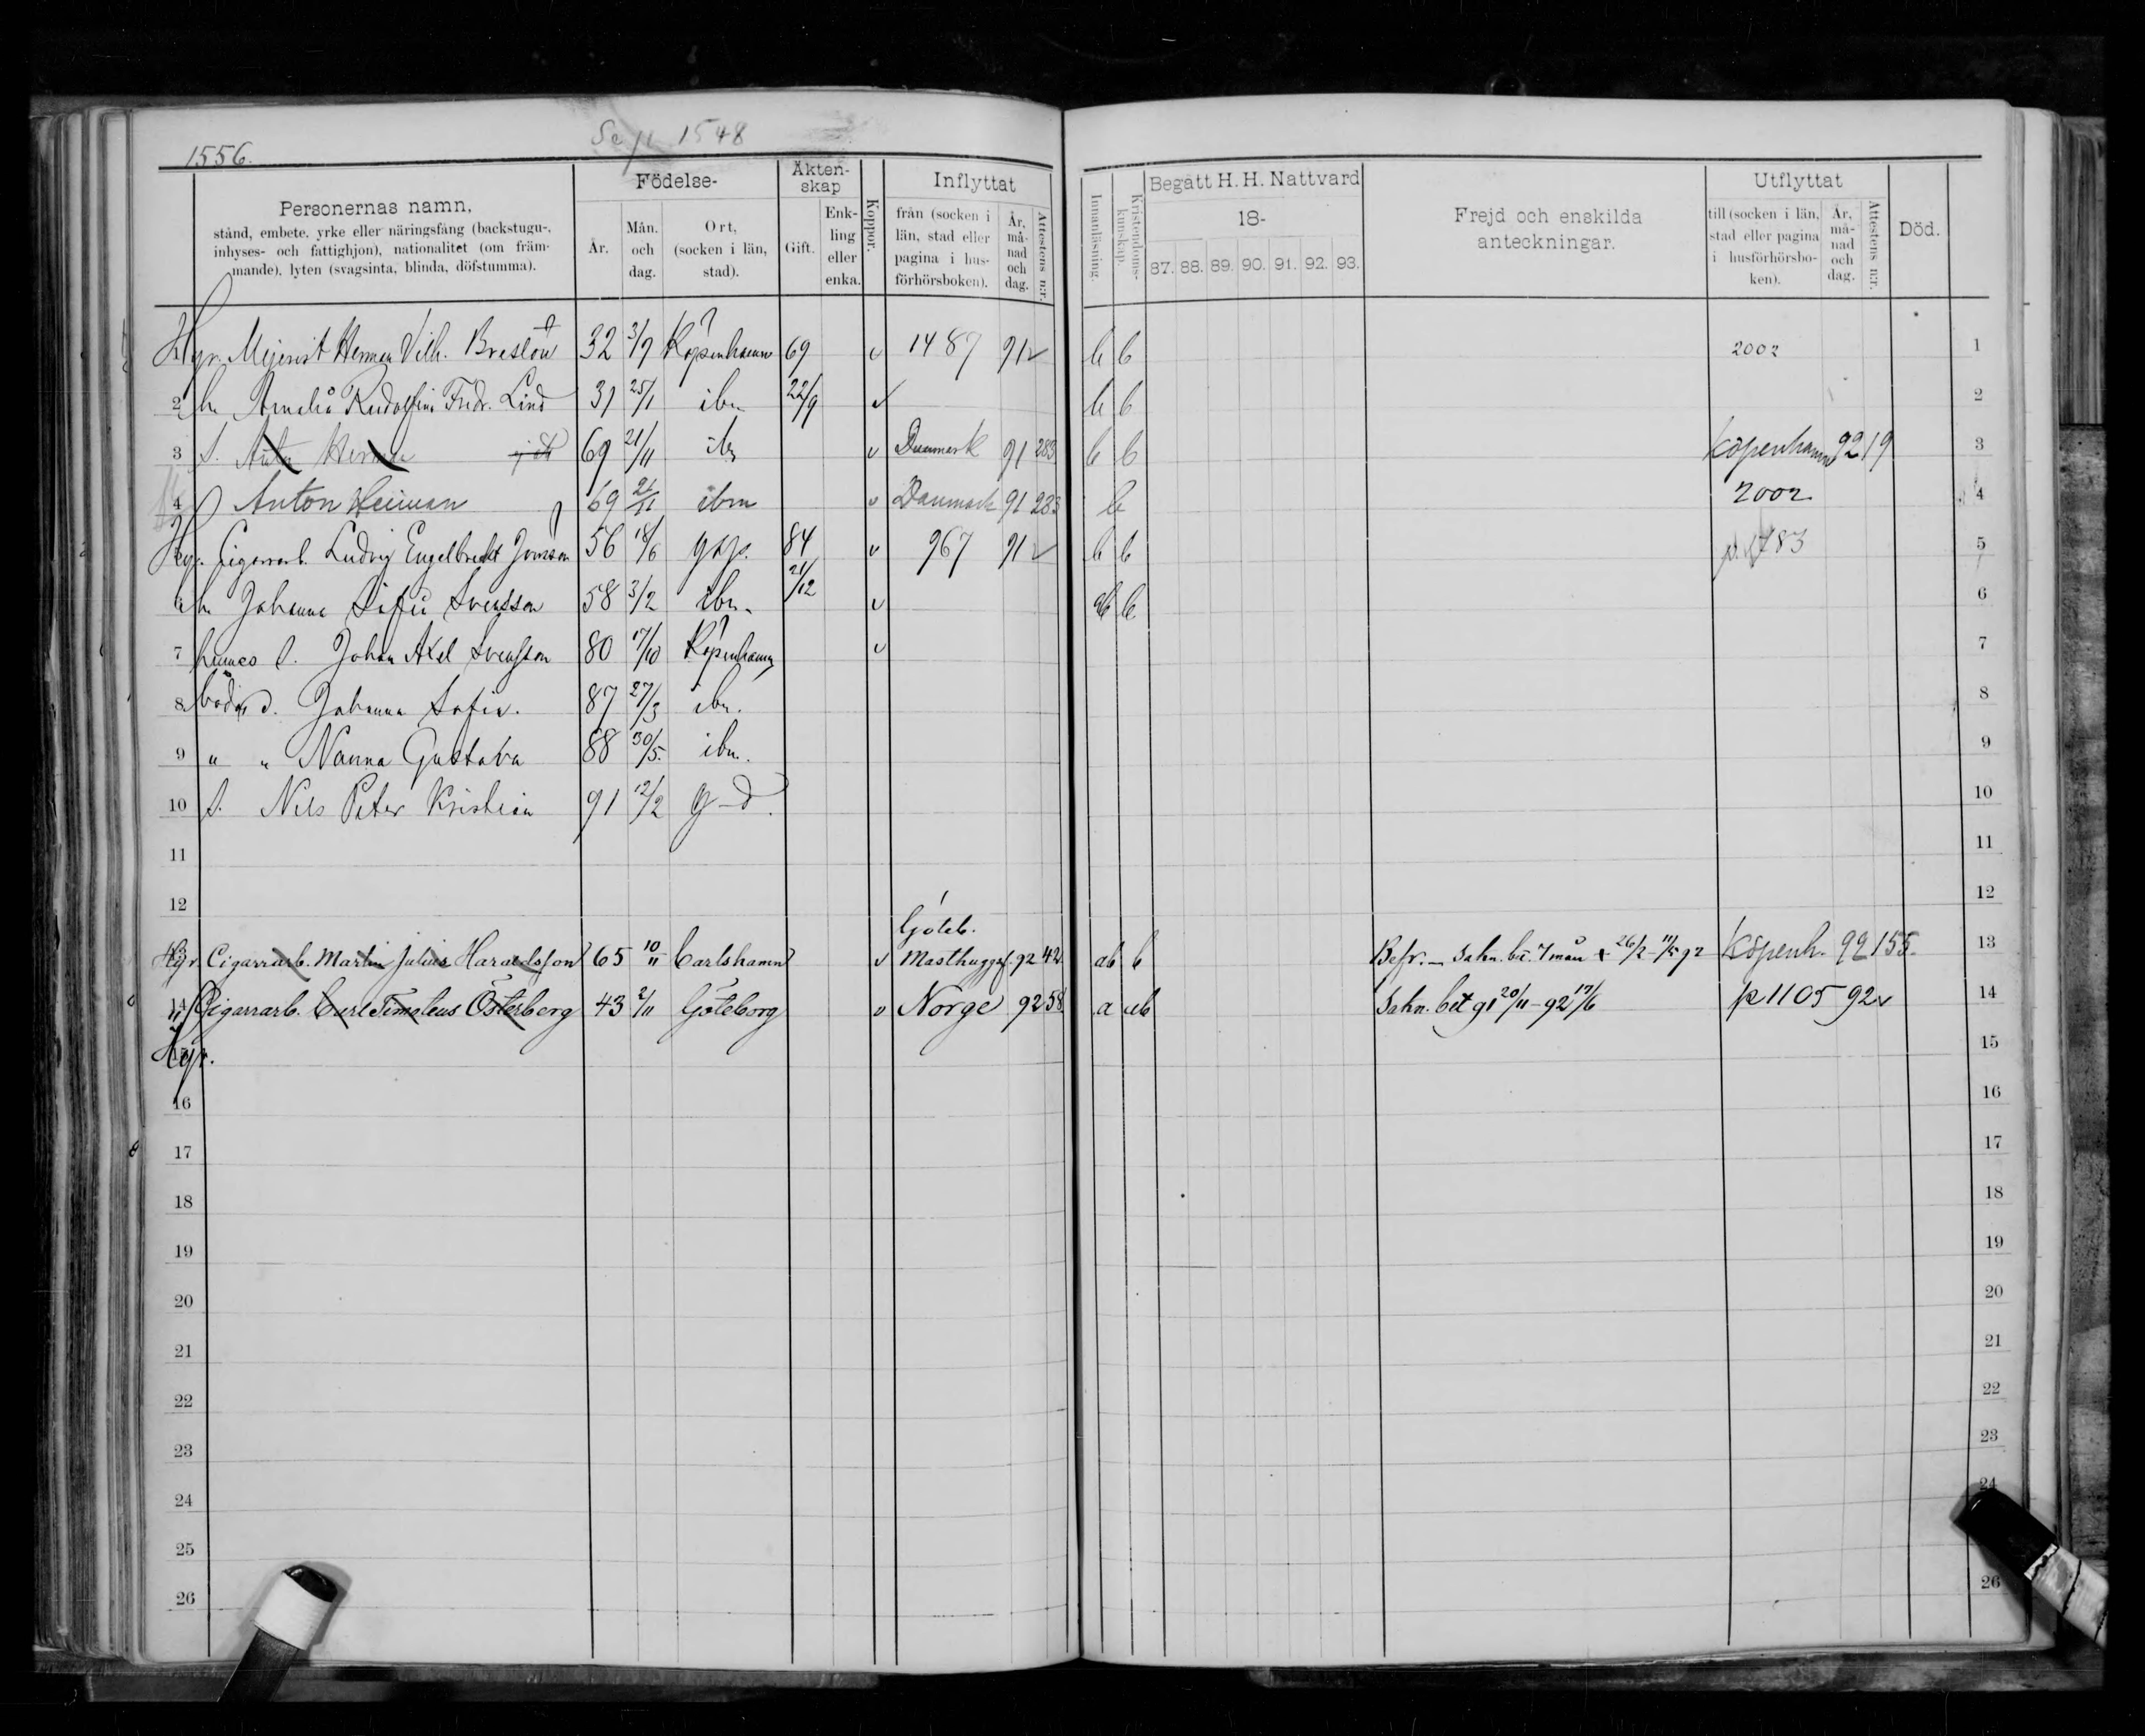 1556.
Se p. 1548
Personernas namn,
stånd, embete, yrke eller näringsfång (backstugu-,
inhyses- och fattighjon), nationalitet (om främ-
mande), lyten (svagsinta, blinda, döfstumma).
Födelse-
År.
Mån. och dag.
Ort, (socken i län, stad).
Äktenskap
Gift.
Enkling eller enka.
Koppor.
Inflyttat
från (socken i län, stad eller pagina i husförhörsboken).
År, månad och dag.
Attestens n:r.
Innanläsning.
Kristendomskunskap.
Begått H. H. Nattvard
18-
87. 88. 89. 90. 91. 92. 93.
Frejd och enskilda
anteckningar.
Utflyttat
till (socken i län, stad eller pagina i husförhörsboken).
År, månad och dag.
Attestens n:r.
Död.
Hgr. Mejerist Herman Vilh. Breslöu 32 3/9 Köpenhamn 69 v 1487 91 v b b 2002 1
2 h. Amalia Rudolfina Fredr. Lind 31 25/1 ibm 22/9 v b b 2
3 s. Herman 69 21/11 ibm v Danmark 91 283 b b Köpenhamn 92 19 3
4 Anton Herman 69 21/11 ibm v Danmark 91 283 b 2002 4
Hgr. Cigarrarb. Ludvig Engelbrekt Jonsson 56 18/6 84 v 967 91 v b b p. 1783 5
h. Johanna Sofia Svensson 58 3/2 ibm. 21/12 v ab b 6
7 hennes s. Johan Axel Svensson 80 17/10 Köpenhamn v 7
8 bådas d. Johanna Sofia. 87 27/3 ibm. 8
9 " " Nanna Gustava 88 30/5. ibm. 9
10 s. Nils Peter Kristian 91 12/2 g-d. 10
11 11
12 12
Göteb.
Hgr. Cigarrarb. Martin Julius Haraldsson 65 10/11 Carlshamn v Masthuggsf. 92 42 ab b Befr. - Sakn. be. 7 mån 26/2 - 11/5 92 Köpenh. 92 155. 13
14 Cigarrarb. Carl Timoteus Österberg 43 2/11 Göteborg v Norge 92 58 a ab Sakn. bet 91 20/11 - 92 17/6 p 1105 92 v 14
Hgr. 15
16 16
17 17
18 18
19 19
20 20
21 21
22 22
23 23
24 24
25
26 26